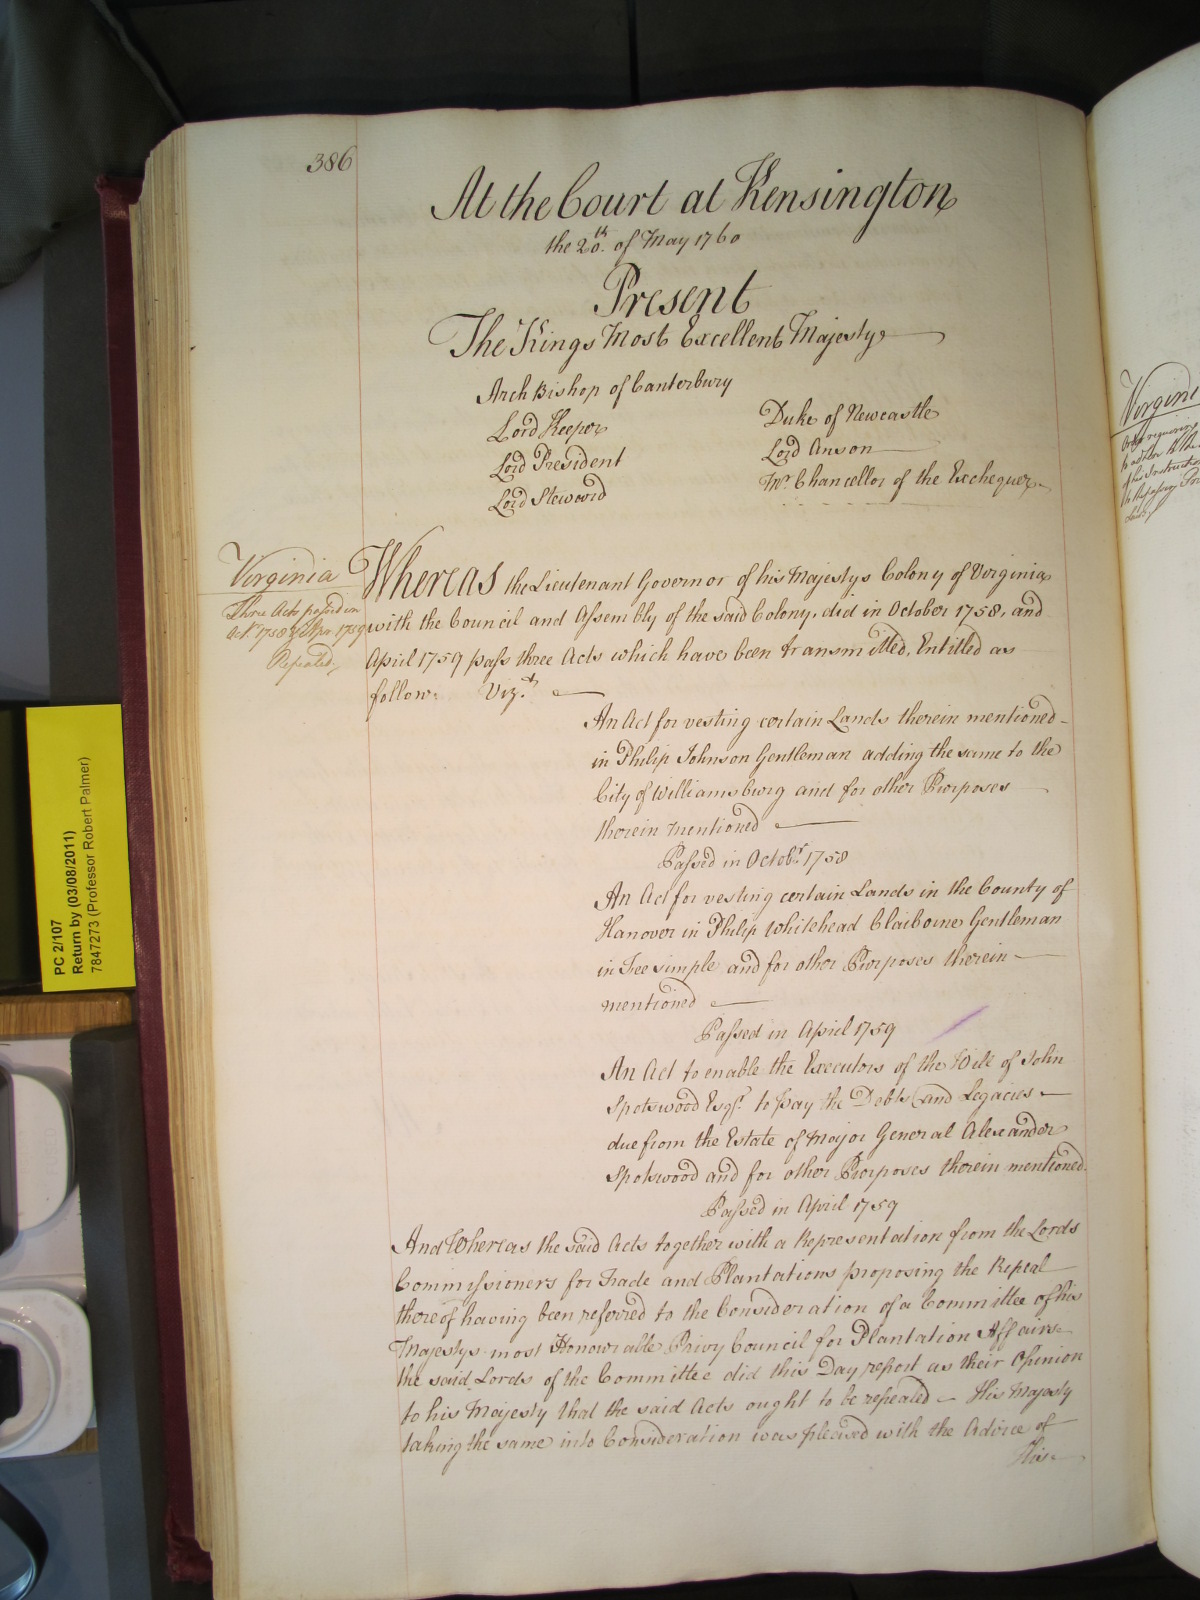 386
At the Court at Kensington
the 20th. of May 1760
Present
The Kings Most Excellent Majesty
Arch Bishop of Canterbury
Lord Keeper
Lord President
Lord Steward
Duke of Newcastle
Lord Anson
Mr. Chancellor of the Exchequer
Virginia
Three Acts passed in
Octr. 1758 & Apr. 1759
Repealed,
Whereas the Lieutenant Governor of his Majestys Colony of Virginia
with the Council and Assembly of the said Colony, did in October 1758, and
April 1759 pass three Acts which have been transmitted, Entitled as
follow. Vizt.
An Act for vesting certain Lands therein mentioned
in Philip Johnson Gentleman adding the same to the
City of Williamsburg and for other Purposes
therein mentioned
Passed in Octobr. 1758
An Act for vesting certain Lands in the County of
Hanover in Philip Whitehead Claiborne Gentleman
in Fee simple and for other Purposes therein
mentioned
Passed in April 1759
An Act to enable the Executors of the Will of John
Spotswood Esqr. to pay the Debts and Legacies
due from the Estate of Major General Alexander
Spotswood and for other Purposes therein mentioned.
Passed in April 1759
And Whereas the said Acts together with a Representation from the Lords
Commissioners for Trade and Plantations proposing the Repeal
thereof having been referred to the Consideration of a Committee of his
Majestys most Honourable Privy Council for Plantation Affairs
the said Lords of the Committee did this Day report as their Opinion
to his Majesty that the said Acts ought to be repealed - His Majesty
taking the same into Consideration was pleased with the Advice of
His
PC 2/107
Return by (03/08/2011)
7847273 (Professor Robert Palmer)